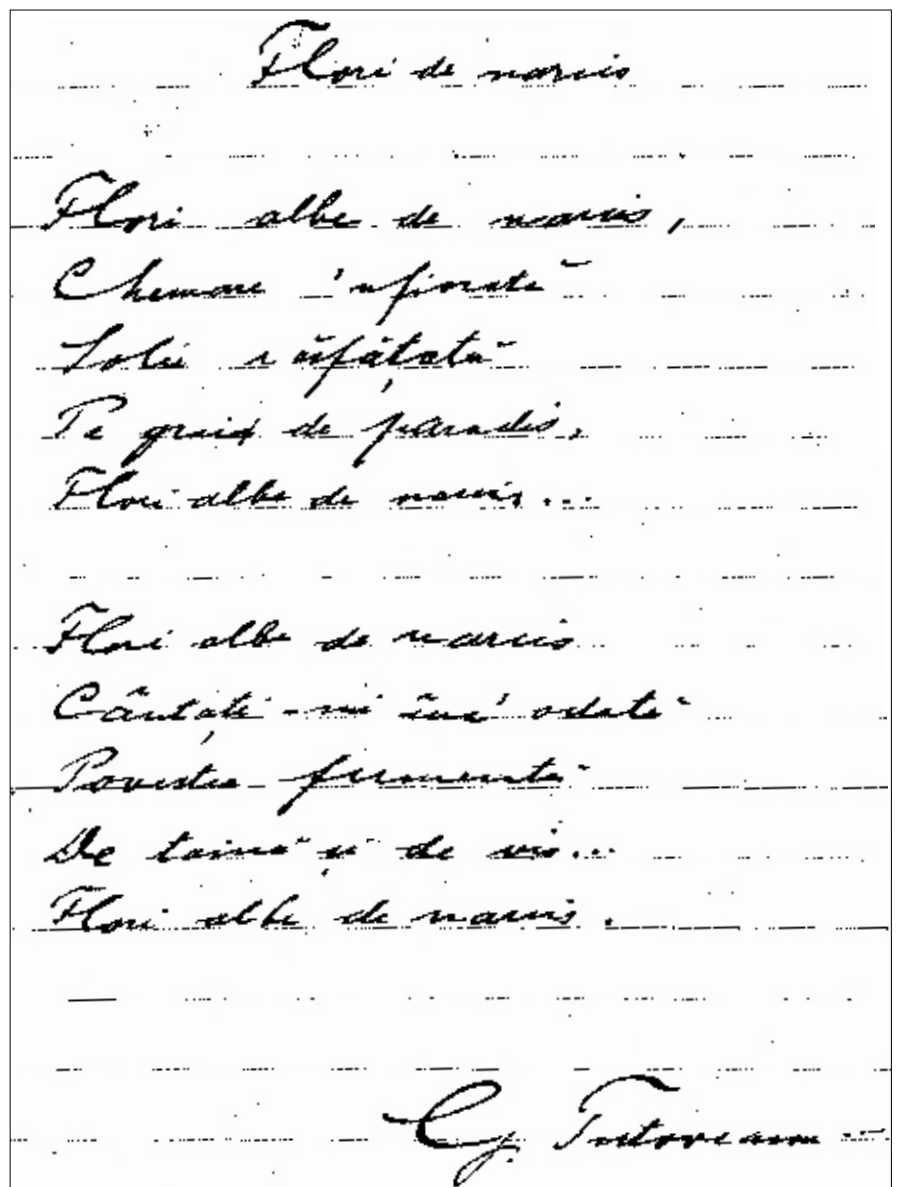 Flori de narcis
Flori albe de narcis,
Chemare 'nfiorată
Solie răsfățată
Pe graiu de paradis,
Flori albe de narcis...
Flori albe de narcis
Cântați-mi înc'odată
Povestea fermecată
De taină și de vis...
Flori albe de narcis.
G. Tutoveanu